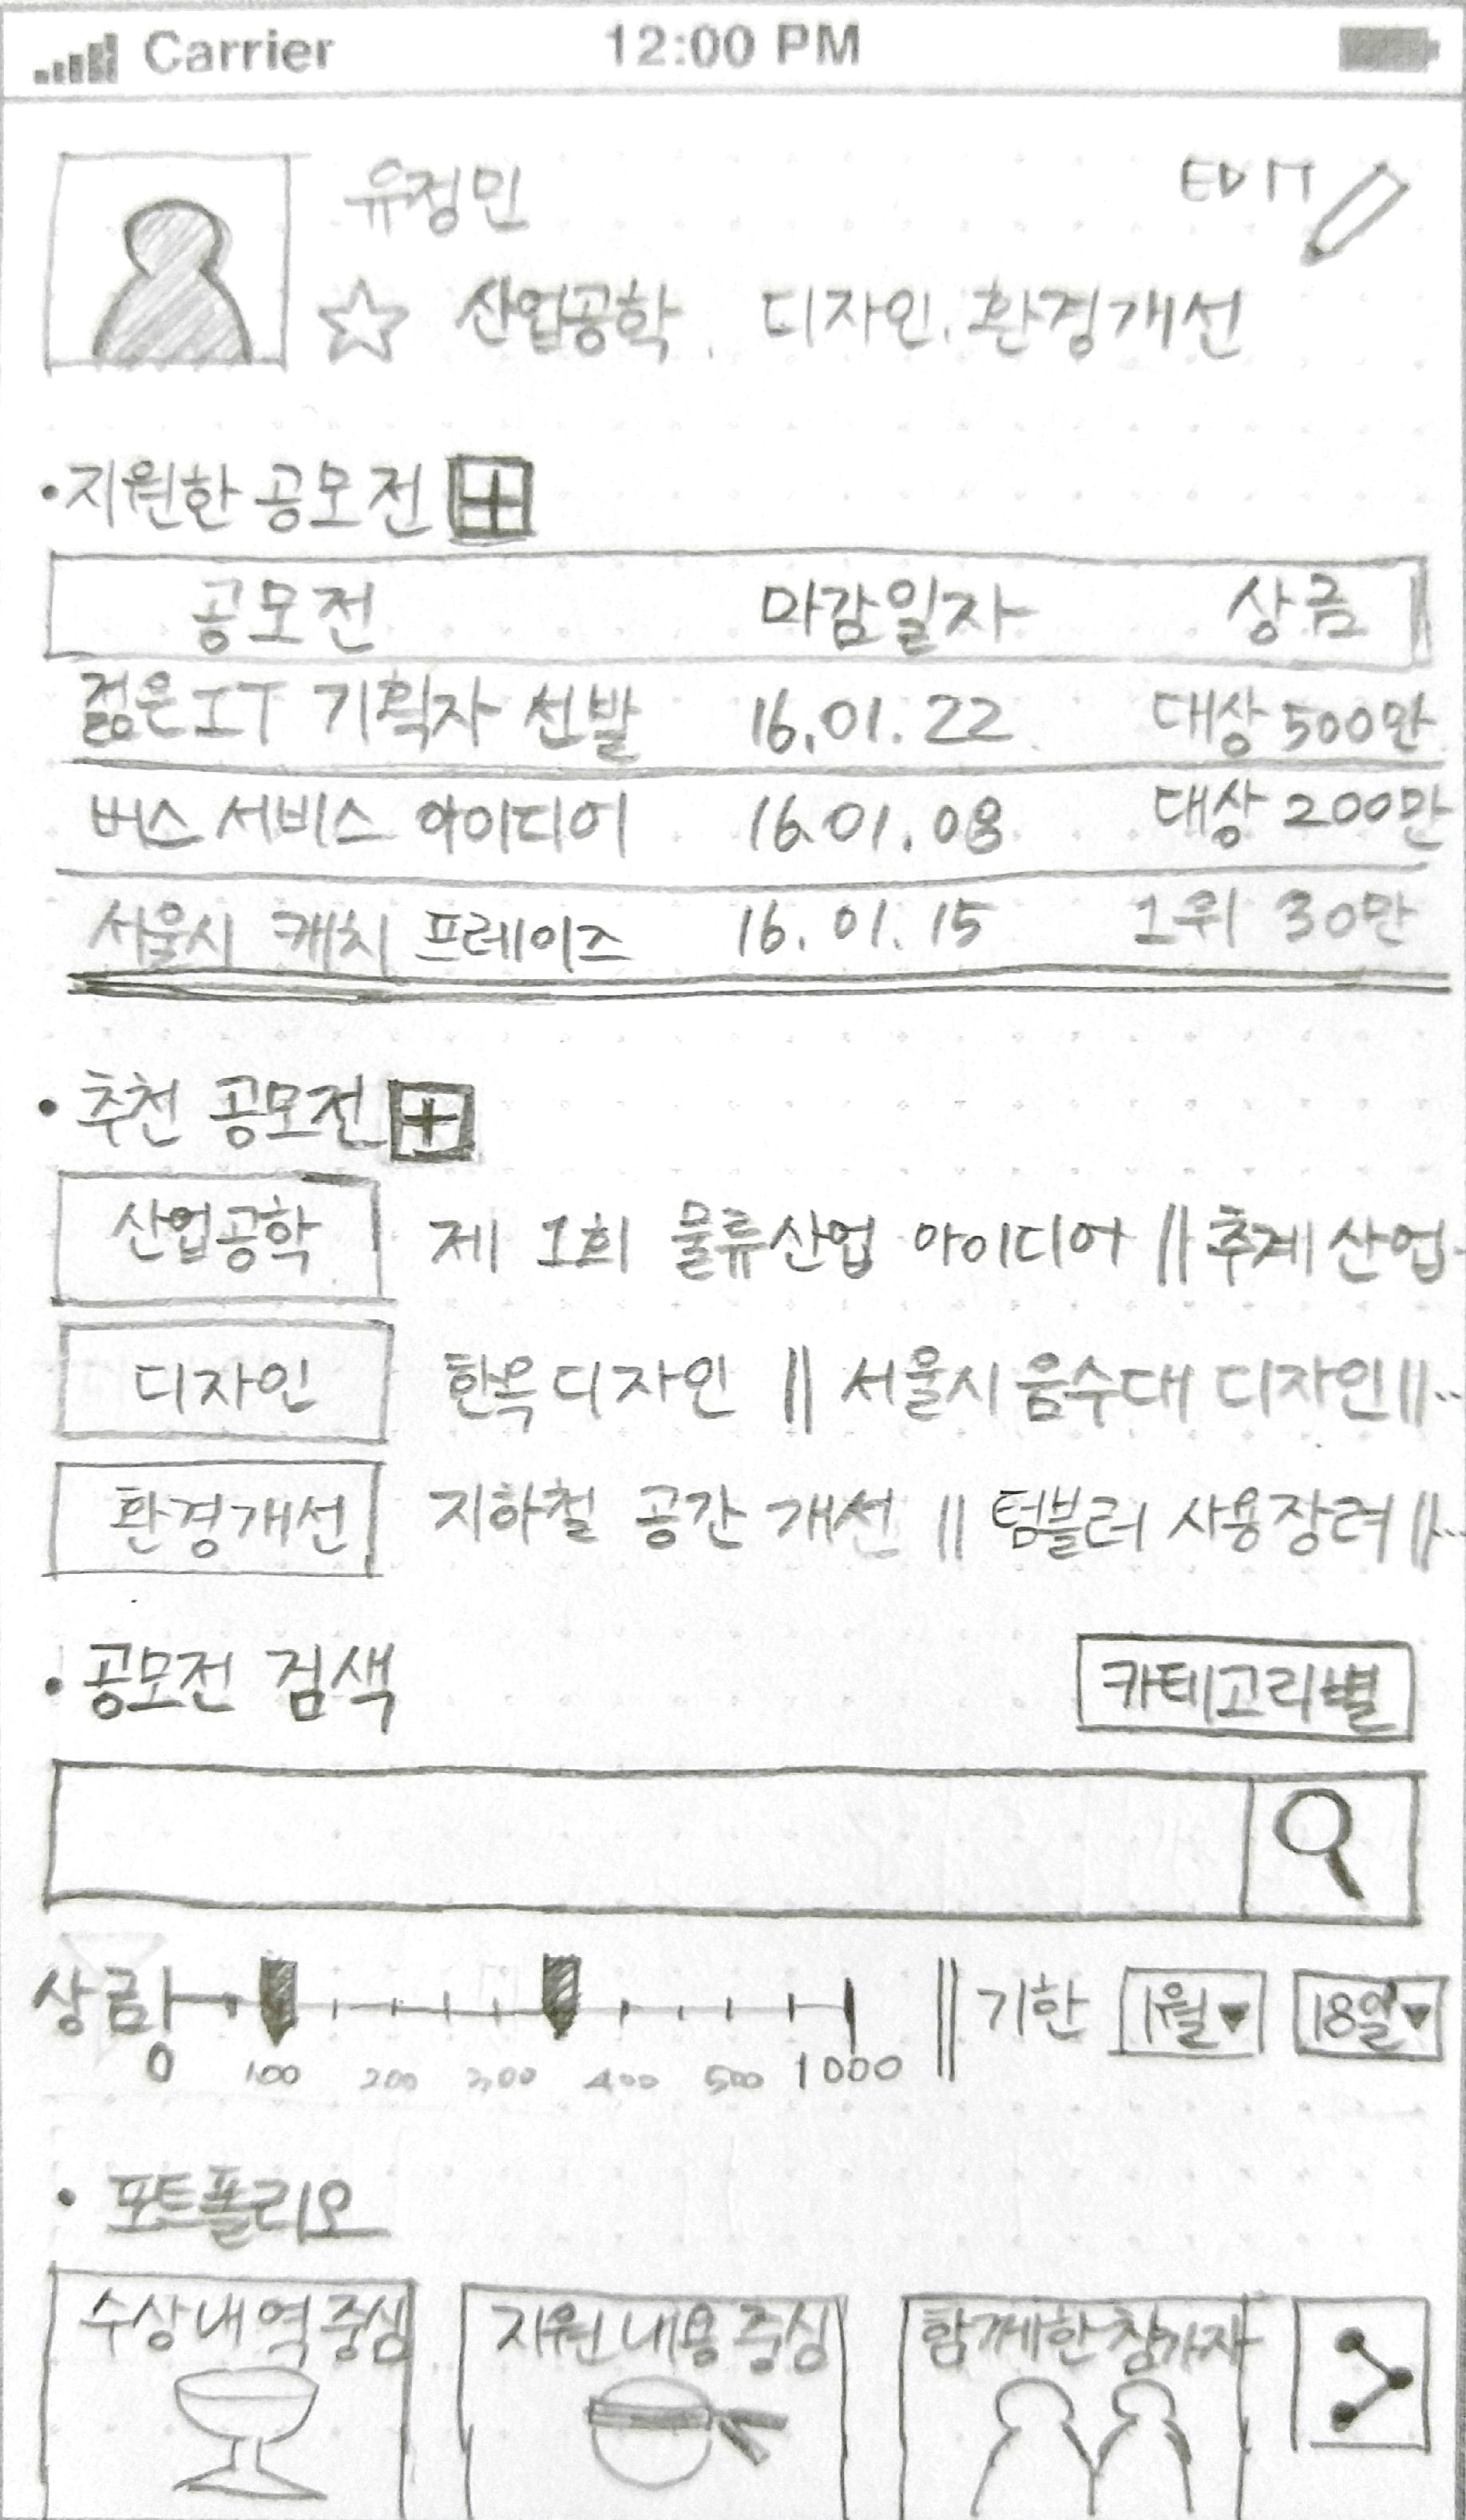 Carrier 12:00 PM
유정민 EDIT
산업공학, 디자인, 환경개선
•지원한 공모전
공모전 마감일자 상금
젊은 IT 기획자 선발 16.01.22 대상 500만
버스 서비스 아이디어 16.01.08 대상 200만
서울시 캐치 프레이즈 16.01.15 1위 30만
•추천 공모전
산업공학 제 1회 물류산업 아이디어 || 추계 산업..
디자인 한옥 디자인 || 서울시 음수대 디자인 ||..
환경개선 지하철 공간 개선 || 텀블러 사용장려 ||...
•공모전 검색 카테고리별
상금 || 기한 1월▼ 18일▼
0 100 200 300 400 500 1000
•포트폴리오
수상내역중심 지원내용중심 함께한참가자